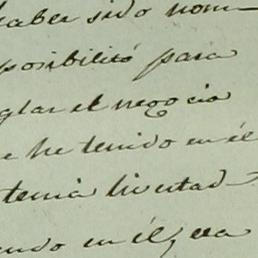 haber sido nom-
posibilitó para
glar el negocio
e he tenido en él
tenia livertad
endo en él, era